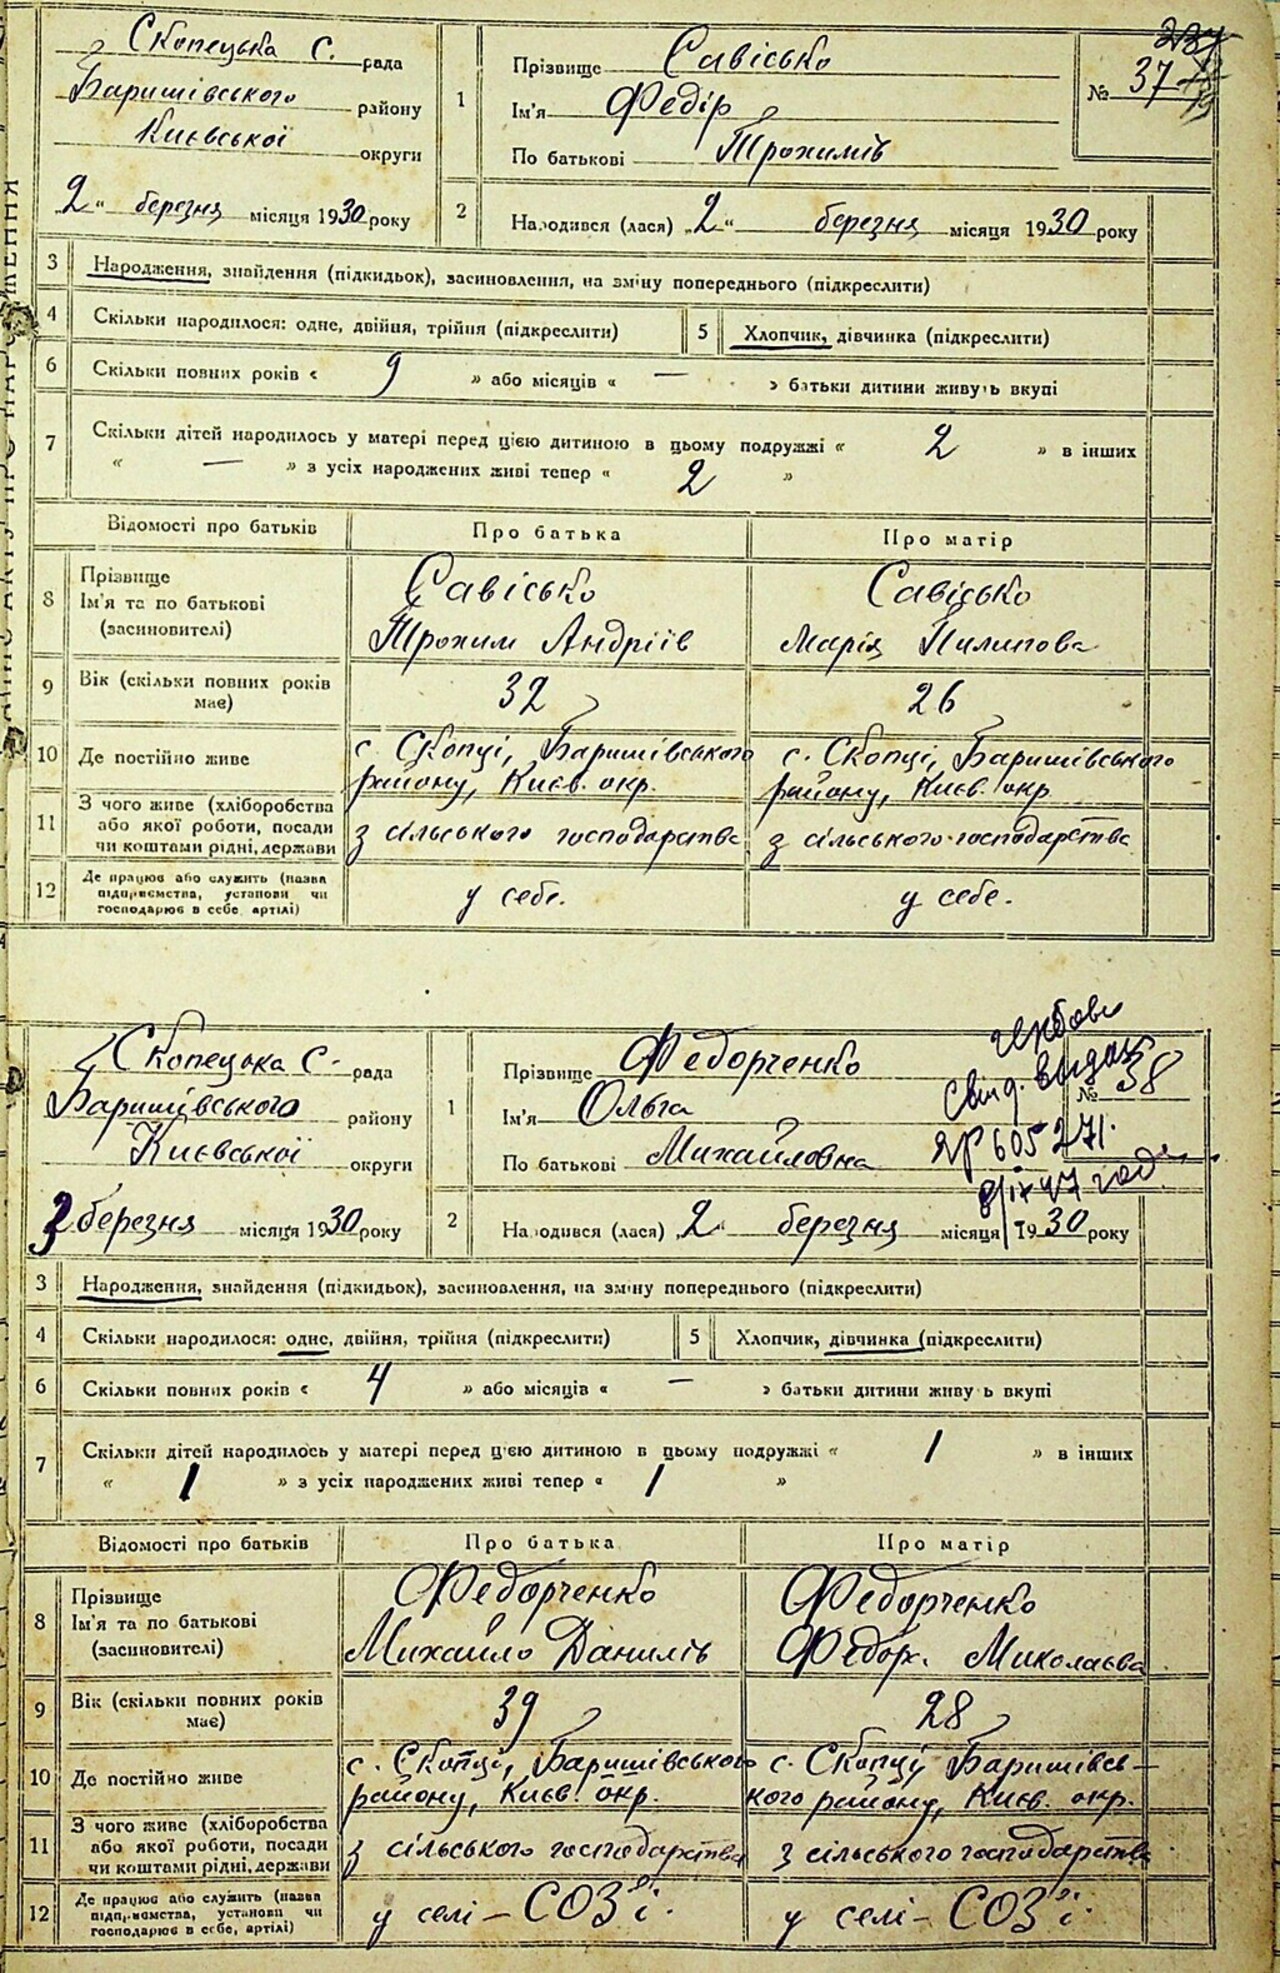 Скопецька С. рада
Баришівського району
Києвської округи
2 „ березня місяця 1930 року
1
Прізвище Савісько
Ім'я Федір
По батькові Трохимів
№ 37
2
Народився (лася) „2“ березня місяця 1930 року
3 Народження, знайдення (підкидьок), засиновлення, на зміну попереднього (підкреслити)
4 Скільки народилося: одне, двійня, трійня (підкреслити) 5 Хлопчик, дівчинка (підкреслити)
6 Скільки повних років « 9 » або місяців « — » батьки дитини живуть вкупі
7 Скільки дітей народилось у матері перед цією дитиною в цьому подружжі « 2 » в інших
« — » з усіх народжених живі тепер « 2 »
Відомості про батьків Про батька Про матір
8 Прізвище Савісько Савісько
Ім'я та по батькові
(засиновителі) Трохим Андріїв Марія Пилипова
9 Вік (скільки повних років має) 32 26
10 Де постійно живе с. Скопці, Баришівського с. Скопці, Баришівського
району, Києв. окр. району, Києв. окр
11 З чого живе (хліборобства
або якої роботи, посади
чи коштами рідні, держави з сільського господарства з сільського господарства
12 Де працює або служить (назва
підприємства, установи чи
господарює в себе, артілі) у себе. у себе.
Скопецька С. рада
Баришівського району
Києвської округи
3 березня місяця 1930 року
1
Прізвище Федорченко
Ім'я Ольга
По батькові Михайловна
№ 38
свид. выдан
ЯР 605271.
8/IX 47 года
2
Народився (лася) „2“ березня місяця 1930 року
3 Народження, знайдення (підкидьок), засиновлення, на зміну попереднього (підкреслити)
4 Скільки народилося: одне, двійня, трійня (підкреслити) 5 Хлопчик, дівчинка (підкреслити)
6 Скільки повних років « 4 » або місяців « — » батьки дитини живу ь вкупі
7 Скільки дітей народилось у матері перед цією дитиною в цьому подружжі « 1 » в інших
« 1 » з усіх народжених живі тепер « 1 »
Відомості про батьків Про батька Про матір
8 Прізвище Федорченко Федорченко
Ім'я та по батькові
(засиновителі) Михайло Данилів Федор. Миколаєва
9 Вік (скільки повних років має) 39 28
10 Де постійно живе с. Скопці, Баришівського с. Скопці Баришівсь–
району, Києв. окр. кого району, Києв. окр.
11 З чого живе (хліборобства
або якої роботи, посади
чи коштами рідні, держави з сільського господарства з сільського господарства
12 Де працює або служить (назва
підприємства, установи чи
господарює в себе, артілі) у селі – СОЗ'і. у селі – СОЗ'і.